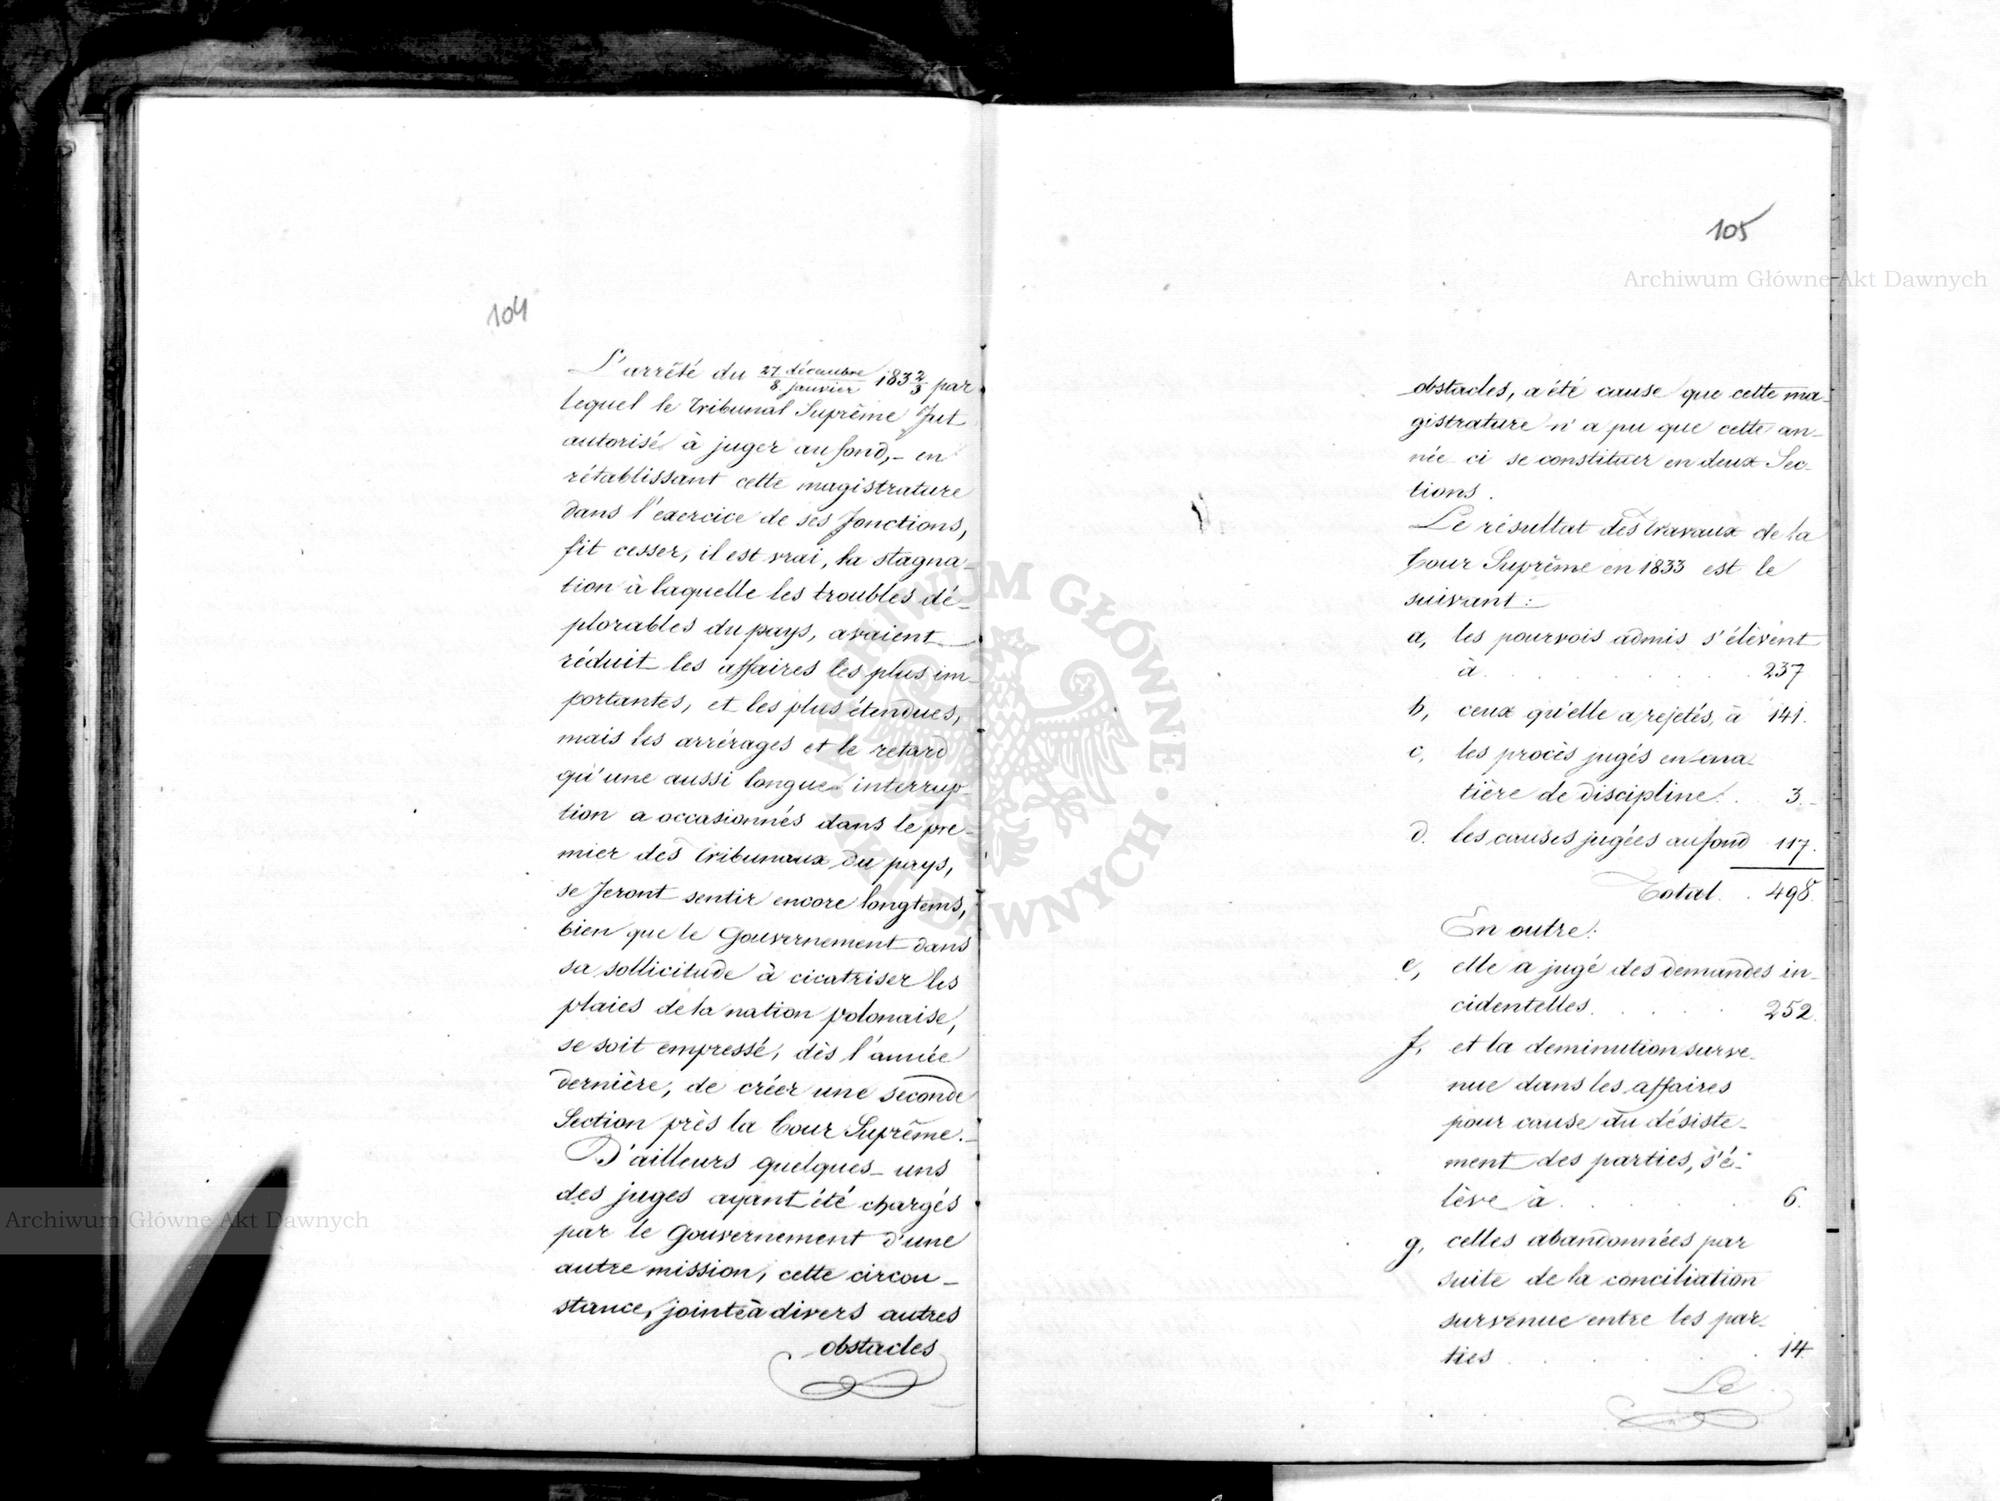 104
L'arrêté du 27 décembre / 8. janvier 1832/3 par
lequel le Tribunal Suprême fut
autorisé à juger au fond,- en
rétablissant cette magistrature
dans l'exercice de ses fonctions,
fit cesser, il est vrai, la stagna-
tion à laquelle les troubles dé-
plorables du pays, avaient
réduit les affaires les plus im-
portantes, et les plus étendues,
mais les arrérages et le retard
qu'une aussi longue interrup-
tion a occasionnés dans le pre-
mier des tribunaux du pays,
se feront sentir encore longtems,
bien que le Gouvernement dans
sa sollicitude à cicatriser les
plaies de la nation polonaise,
se soit empressé, dès l'année
dernière, de créer une seconde
Section près la Cour Suprême.-
D'ailleurs quelques-uns
des juges ayant été chargés
par le Gouvernement d'une
autre mission, cette circon-
stance, jointe à divers autres
obstacles
105
obstacles, a été cause que cette ma-
gistrature n'a pu que cette an-
née ci se constituer en deux Sec-
tions.
Le résultat des travaux de la
Cour Suprême en 1833 est le
suivant:-
a, les pourvois admis s'élèvent
à . . . . . . 237
b, ceux qu'elle a rejetés, à 141.
c, les procès jugés en ma-
tière de discipline . . 3.-
d. les causes jugées au fond 117.
Total . . 498.
En outre:
e, elle a jugé des demandes in-
cidentelles . . . . . 252.
f, et la deminution surve-
nue dans les affaires
pour cause du désiste-
ment des parties, s'é-
lève à . . . . . . 6.
g, celles abandonnées par
suite de la conciliation
survenue entre les par-
ties . . . . . . 14.
Le
Archiwum Główne Akt Dawnych
Archiwum Główne Akt Dawnych
ARCHIWUM GŁÓWNE AKT DAWNYCH